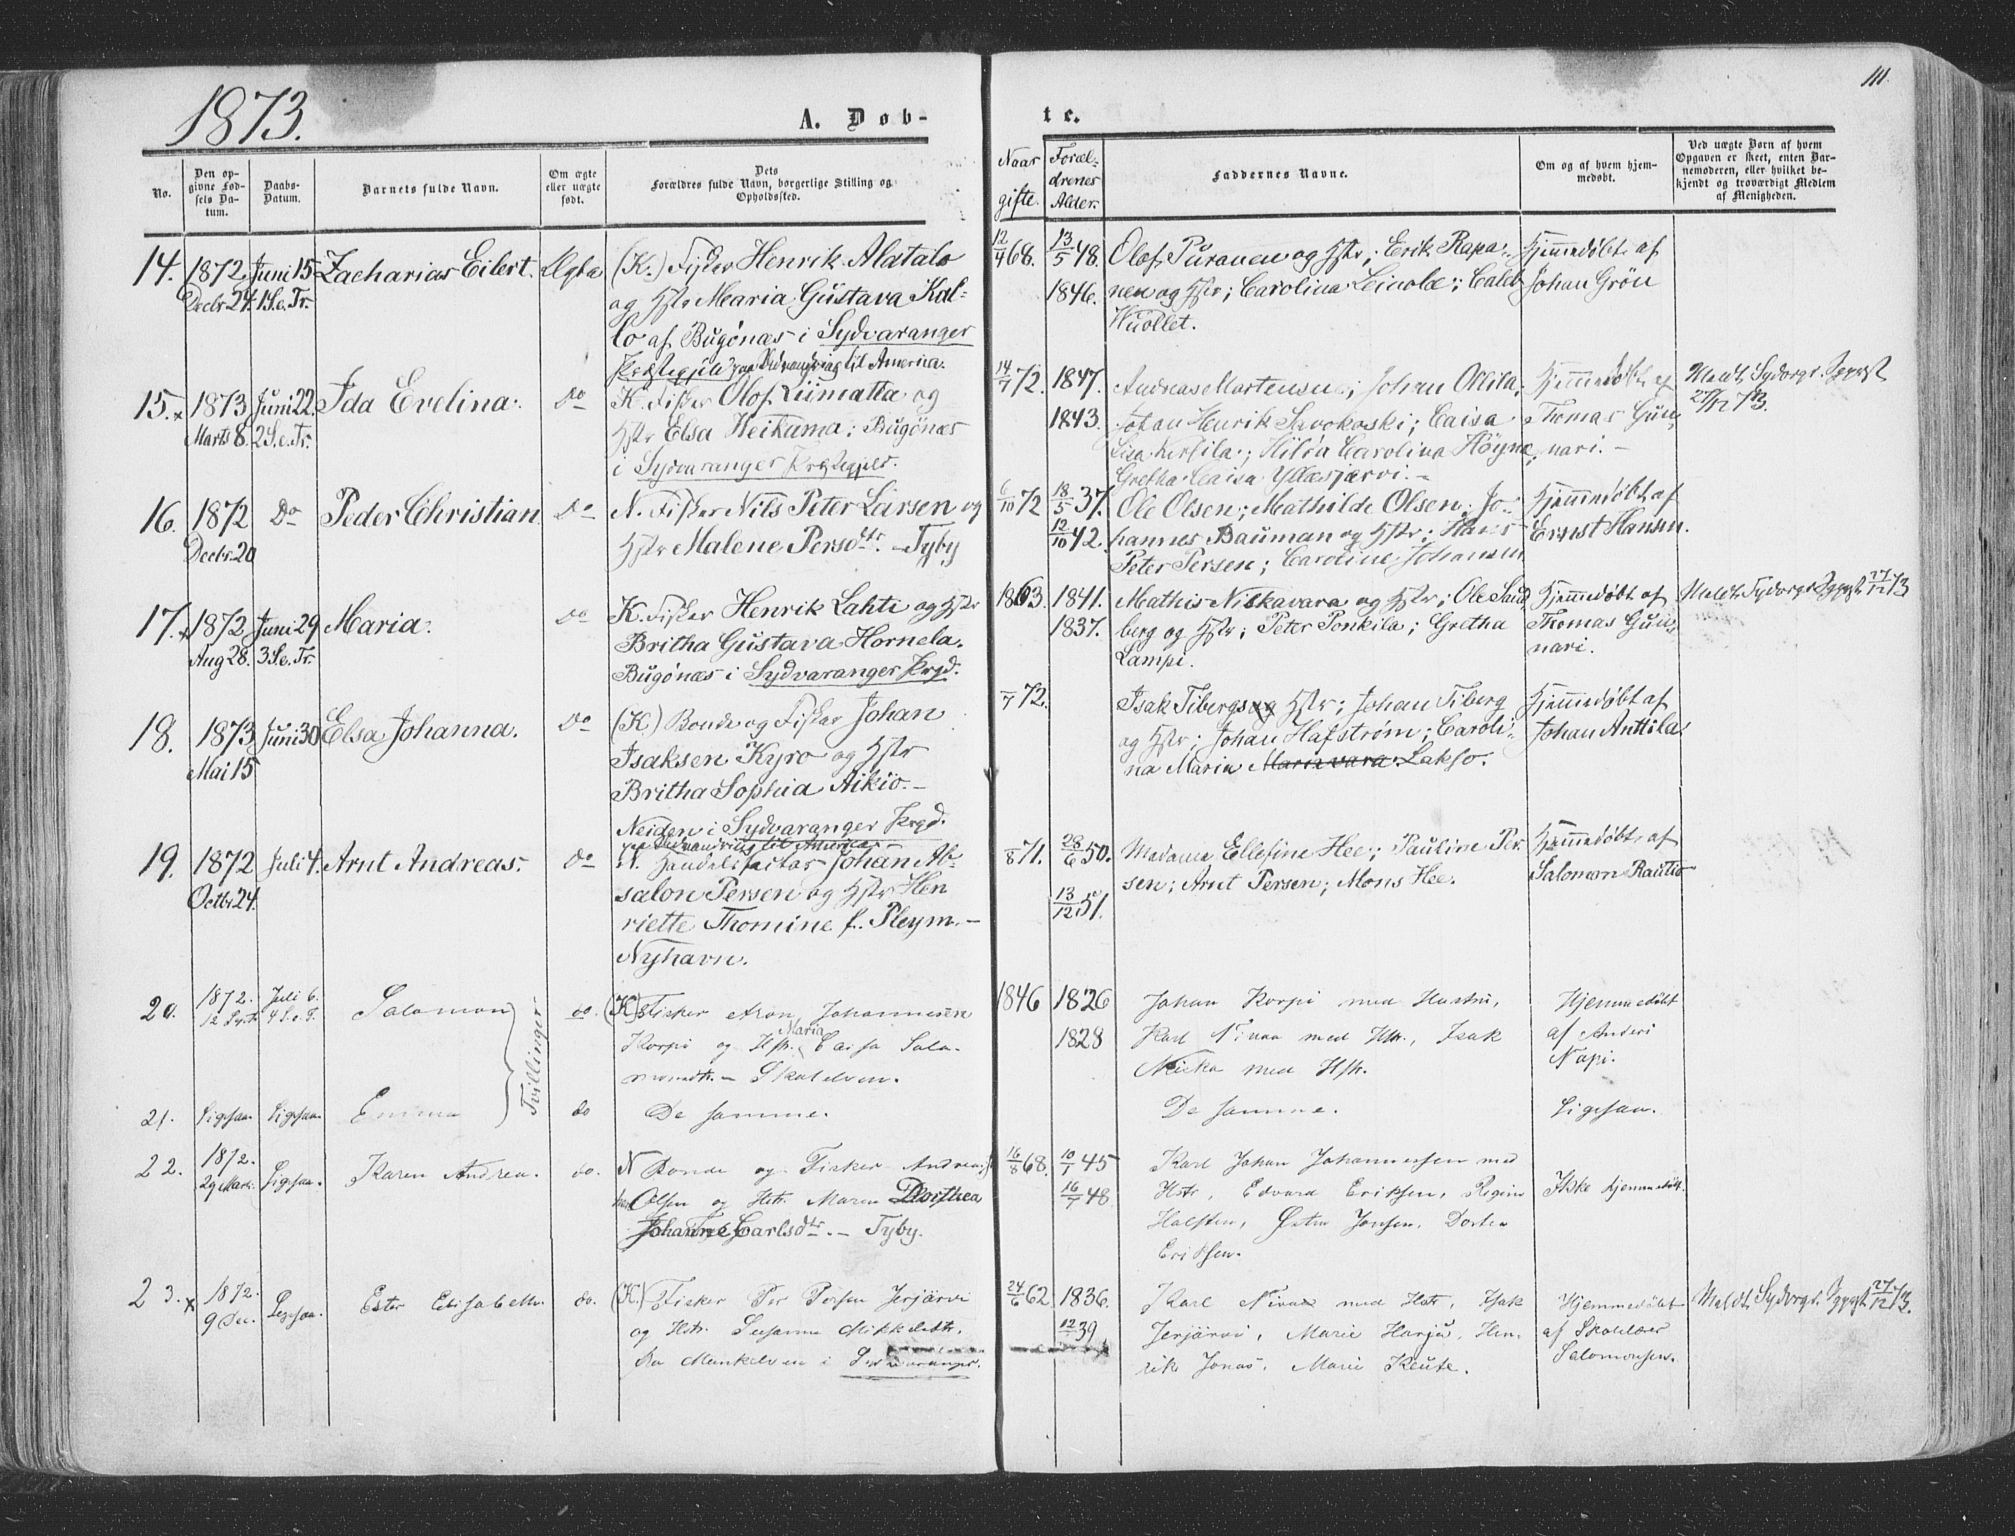 111.
1873.
A. Døb-
te.
No.
Den op-
givne Fød-
sels Da-
tum.
Daabs-
Datum.
Barnets fulde Navn.
Om ægte
eller uægte
født.
Dets
Forældres fulde Navn, borgerlige Stilling og
Opholdssted.
Naar
gifte.
Foræl-
drenes
Alder.
Faddernes Navne.
Om og af hvem hjem-
medøbt.
Ved uægte Børn af hvem
Opgaven er skeet, enten Bar-
nemoderen, eller hvilket be-
kjendt og troværdigt Medlem
af Menigheden.
14.
1872
Decbr. 24.
Juni 15
1 S. e. Tr.
Zacharias Eilert.
Ægte
(K.) Fisker Henrik Alatalo
og Hstr Maria Gustava Kal-
lo af Bugønæs i Sydvaranger
Præstegjeld paa Udvandring til America.
12/4 68.
13/5 48.
1846.
Olof Puranen og Hstr; Erik Rapa-
nen og Hstr; Carolina Leinole; Caleb
Huollet.
Hjemmedøbt af
Johan Grön
15. x
1873
Marts 8.
Juni 22.
2 S. e. Tr.
Ida Evelina.
Do
K. Fisker Olof Riimatta og
Hstr Elsa Heikuma; Bugønæs
i Sydvaranger Præstegjeld.
14/1 72.
1847.
1843.
Andreas Mortensen; Johan Ollila;
Johan Henrik Savokoski; Caisa
Lisa Kersila; Hilda Carolina Höyne;
Gretha Caisa Yllæsjærvi. -
Hjemmedøbt af
Thomas Gun-
nari. -
Meldt Sydvrgr. Sgprst
27/12 73.
16.
1872
Decbr. 20
Do
Peder Christian
Do
N. Fisker Nils Peter Larsen og
Hstr Malene Persdtr. - Tyby
6/10 72
18/5 37.
12/10 42.
Ole Olsen; Mathilde Olsen; Jo-
hannes Bauman og Hstr; Hans
Peter Persen; Caroline Johansen
Hjemmedøbt af
Ernst Hansen.
17. x
1872
Aug 28.
Juni 29
3 S. e. Tr.
Maria.
Do
K. Fisker Henrik Lahti og Hstr
Britha Gustava Hornela.
Bugönæs i Sydvaranger Prgd.
1863.
1841.
1837.
Mathis Niskavara og Hstr; Ole Sand
berg og Hstr; Peter Ponkila; Gretha
Lampi.
Hjemmedøbt af
Thomas Gun-
nari.
Meldt Sydvrgr Sgprst 27/12 73
18.
1873
Mai 15
Juni 30
Elsa Johanna.
Do
(K) Bonde og Fisker Johan
Isaksen Kyrö og Hstr
Britha Sophia Aikio. -
Neiden i Sydvaranger Prgd.
paa Udvandring til America. -
/7 72.
Isak Tibergs og Hstr; Johan Tiberg
og Hstr; Johan Hafström; Caroli-
na Maria Lakso.
Hjemmedøbt af
Johan Anttila
19.
1872
Octbr 24.
Juli 4.
Arnt Andreas.
Do
N. Handelsfactor Johan Ab-
salon Persen og Hstr Hen
riette Thomine f. Pleym. -
Nyhavn.
/8 71.
28/6 50.
13/12 51.
Madame Ellefine Hee; Pauline Per-
sen; Arnt Persen; Mons Hee.
Hjemmedøbt af
Salomon Rautio
20.
1872.
12 Sptr
Juli 6.
4 S. e. T.
Salomon
Tvillinger
do.
(K) Fisker Aron Johannesen
Maria
Korpi og Hstr. Caisa Salo-
monsdtr. - Skalelven.
1846
1826
1828
Johan Korpi med Hustru,
Karl Nivaa med Hstr., Isak
Niska med Hstr.
Hjemmedøbt
af Anders
Napi.
21.
Ligesaa
Ligesaa
Emma
do
De samme.
De samme.
Ligesaa.
22.
1872.
29 Marts
Ligesaa.
Karen Andrea.
do.
N Bonde og Fisker Andreas
Olsen og Hstr. Maren Dorthea
Johanne Carlsdtr. - Tyby.
16/8 68.
10/1 45
16/7 48
Karl Johan Johannessen med
Hstr., Edvard Eriksen, Regine
Halsten, Østen Jonsen, Dorthea
Eriksen.
Ikke hjemmedøbt.
23. x
1872.
9 Dec.
Ligesaa.
Ester Elisabeth.
do.
(K) Fisker Per Persen Jerjärvi
og Hstr. Susanna Mikkelsdtr.
fra Munkelven i Sydvaranger.
24/6 62
1836.
12/ 39
Karl Nivas med Hstr., Isak
Jerjärvi, Marie Harju, Hen-
rik Jonas, Marie Keute.
Hjemmedøbt
af Skolelærer
Salomonsen.
Meldt Sydvrgr. Sgprst 27/12 73.